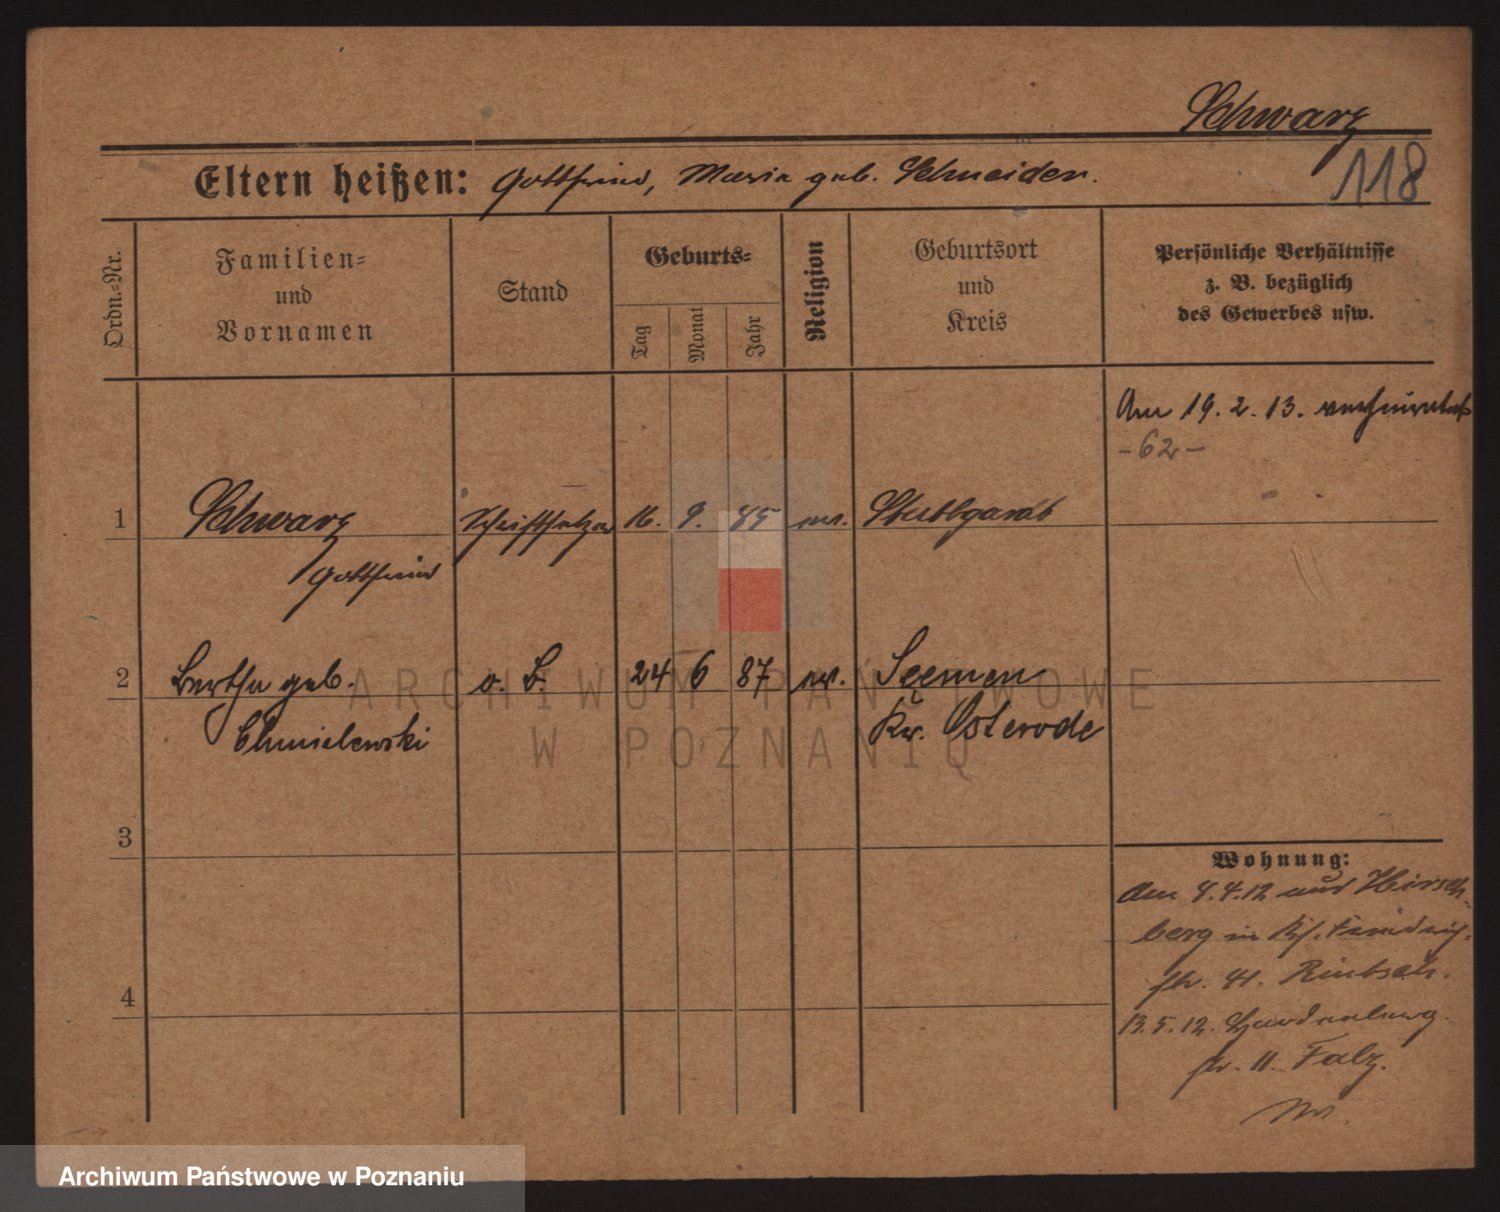 Schwarz
118
Eltern heißen: Gottfried, Maria geb. Schneider.
Ordn.-Nr.
Familien-
und
Vornamen
Stand
Geburts-
Tag
Monat
Jahr
Religion
Geburtsort
und
Kreis
Persönliche Verhältnisse
z. B. bezüglich
des Gewerbes usw.
Am 19. 2. 13. verheiratet
-62-
1 Schwarz Schriftsetzer 16. 9. 85 ev. Stuttgardt
Gottfried
2 Bertha geb. o. B. 24 6 87 ev. Seemen
Chmielewski Kr. Osterode
3
4
Wohnung:
Am 4.12 aus Hirsch-
berg in Friedrich-
str. Rintsch.
13.5.12. Hardenberg
str. 11. Falz.
ARCHIWUM PAŃSTWOWE
W POZNANIU
Archiwum Państwowe w Poznaniu